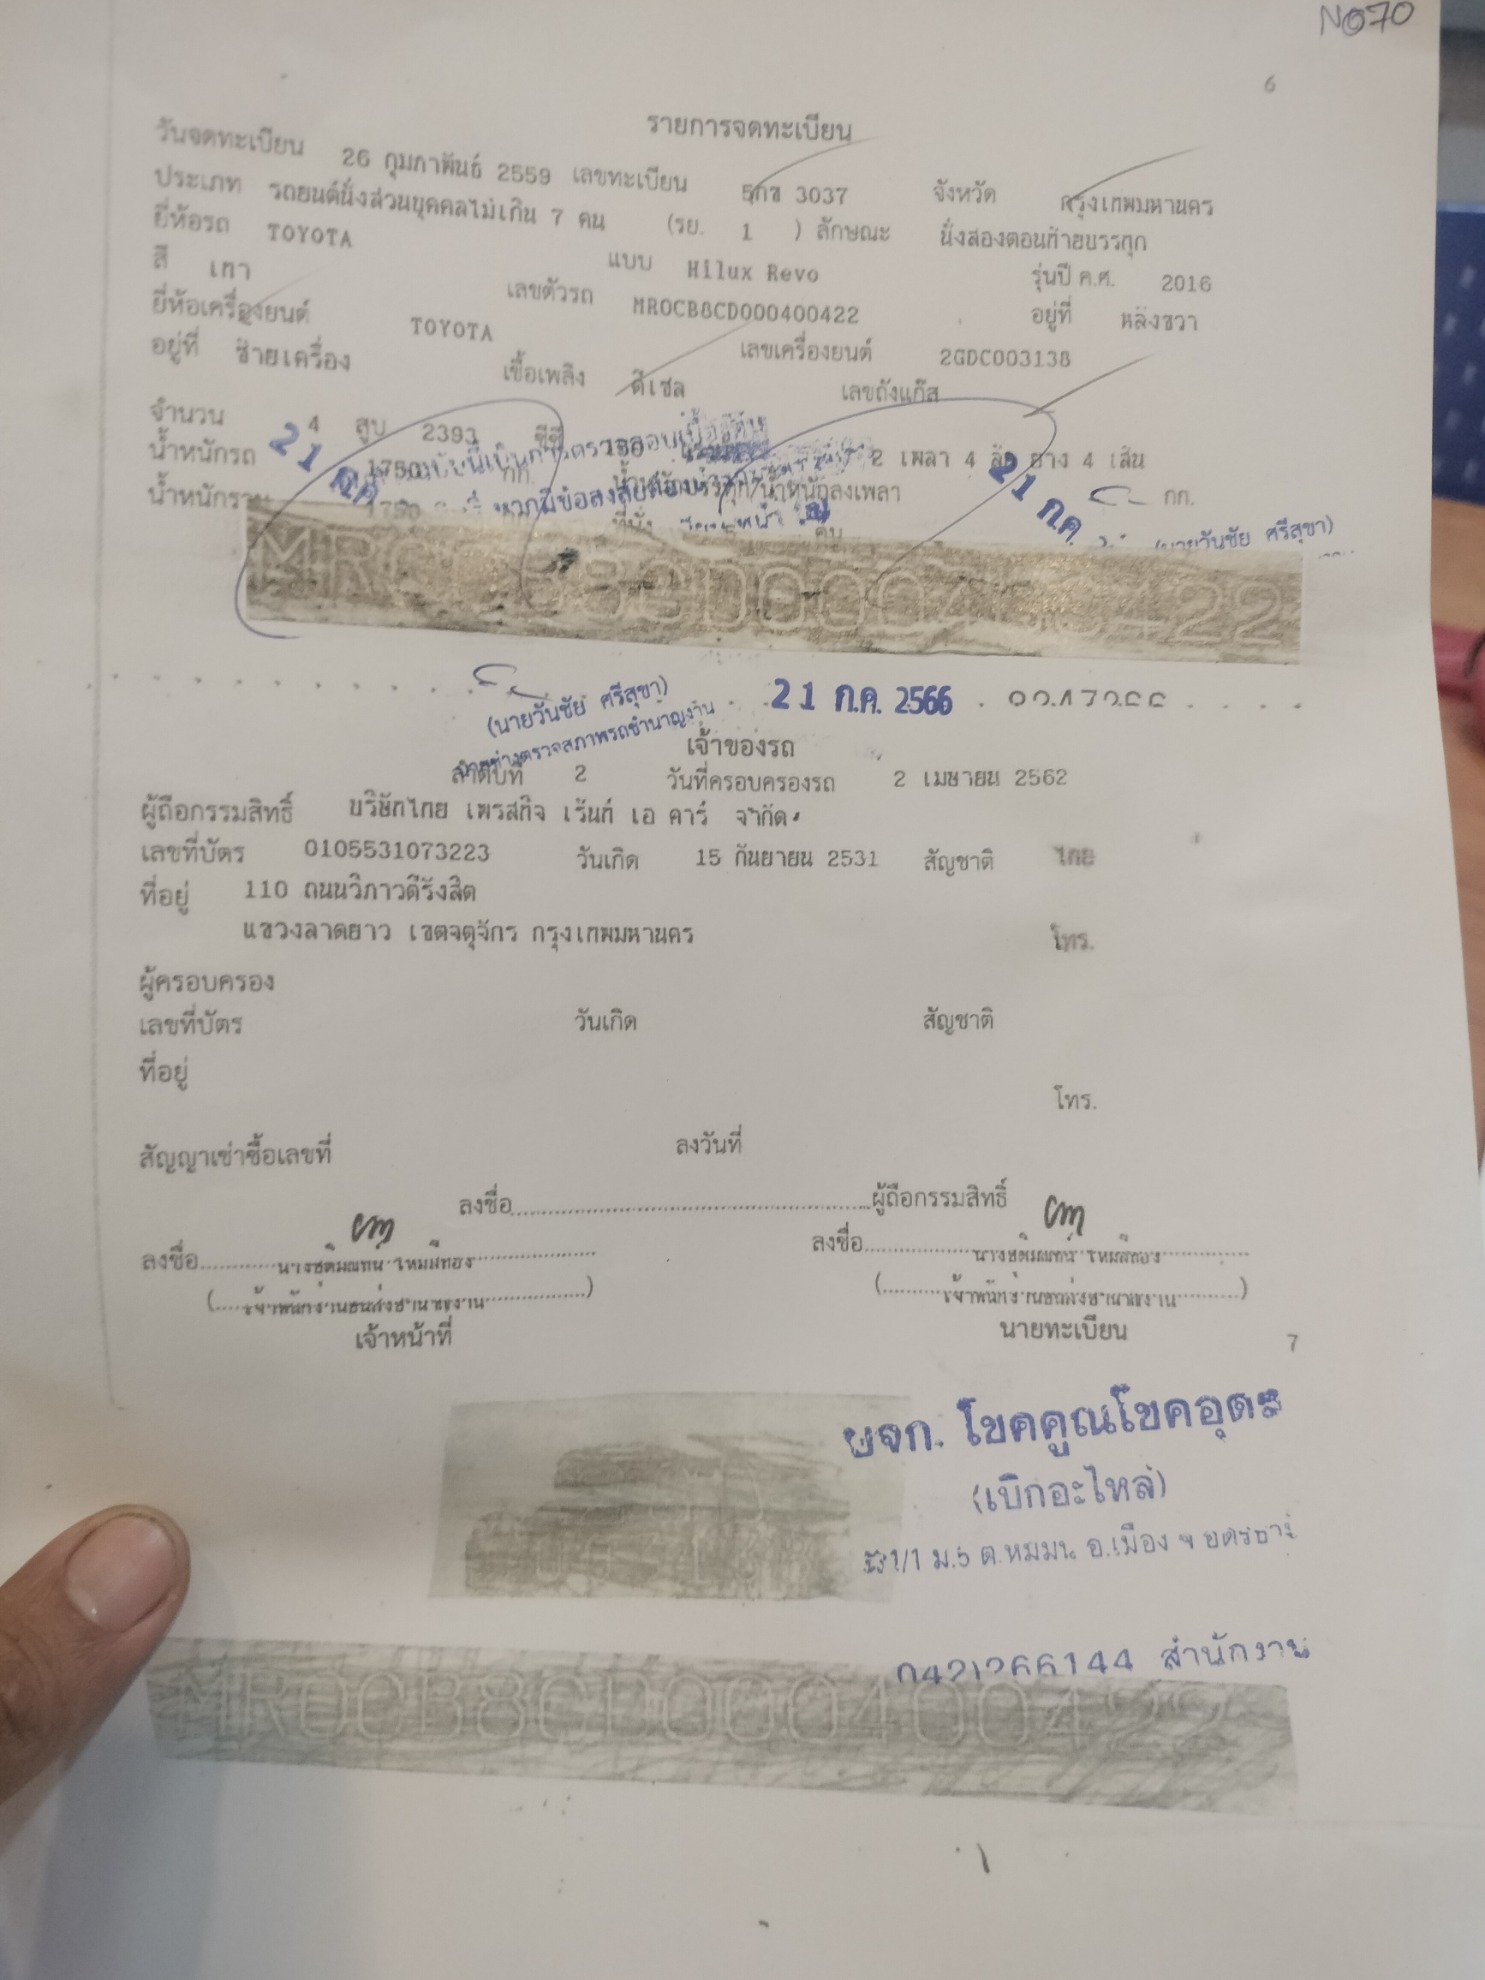 NO70
6
รายการจดทะเบียน
วันจดทะเบียน 26 กุมภาพันธ์ 2559 เลขทะเบียน 5กข 3037 จังหวัด กรุงเทพมหานคร
ประเภท รถยนต์นั่งส่วนบุคคลไม่เกิน 7 คน (รย. 1 ) ลักษณะ นั่งสองตอนท้ายบรรทุก
ยี่ห้อรถ TOYOTA แบบ Hilux Revo รุ่นปี ค.ศ. 2016
สี เทา เลขตัวรถ MR0CB8CD000400422 อยู่ที่ หลังขวา
ยี่ห้อเครื่องยนต์ TOYOTA เลขเครื่องยนต์ 2GDC003138
อยู่ที่ ซ้ายเครื่อง เชื้อเพลิง ดีเซล เลขถังแก๊ส
จำนวน 4 สูบ 2393 ซีซี 2 เพลา 4 ล้อ ยาง 4 เส้น
น้ำหนักรถ 1750 กก. น้ำหนักบรรทุก/น้ำหนักลงเพลา กก.
น้ำหนักรวม 1750 ที่นั่ง คน
21 ก.ค.
21 ก.ค.
(นายวันชัย ศรีสุขา)
(นายวันชัย ศรีสุขา)
นายช่างตรวจสภาพรถชำนาญงาน
21 ก.ค. 2566
เจ้าของรถ
ลำดับที่ 2 วันที่ครอบครองรถ 2 เมษายน 2562
ผู้ถือกรรมสิทธิ์ บริษัทไทย เพรสทิจ เร้นท์ เอ คาร์ จำกัด
เลขที่บัตร 0105531073223 วันเกิด 15 กันยายน 2531 สัญชาติ ไทย
ที่อยู่ 110 ถนนวิภาวดีรังสิต
แขวงลาดยาว เขตจตุจักร กรุงเทพมหานคร โทร.
ผู้ครอบครอง
เลขที่บัตร วันเกิด สัญชาติ
ที่อยู่
โทร.
สัญญาเช่าซื้อเลขที่ ลงวันที่
ลงชื่อ ผู้ถือกรรมสิทธิ์
ลงชื่อ ลงชื่อ
(เจ้าพนักงานขนส่งชำนาญงาน) (เจ้าพนักงานขนส่งชำนาญงาน)
เจ้าหน้าที่ นายทะเบียน
7
หจก. โชคคูณโชคอุดร
(เบิกอะไหล่)
1/1 ม.5 ต.หมูม่น อ.เมือง จ.อุดรธานี
0421266144 สำนักงาน
MR0CB8CD000400422